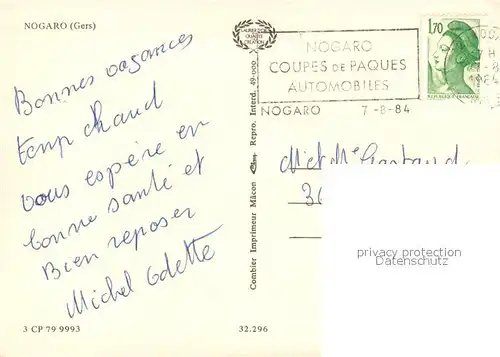 NOGARO (Gers)
LAURIER D'OR
QUALITE
CREATION
NOGARO
COUPES DE PAQUES
AUTOMOBILES
NOGARO 7-8-84
1,70
REPUBLIQUE FRANÇAISE
1984
Bonnes vacances
temp chaud
vous espère en
bonne santé et
Bien reposer
Michel Odette
Combier Imprimeur Mâcon Repro. Interd. 49-000
36
privacy protection
Datenschutz
3 CP 79 9993
32.296